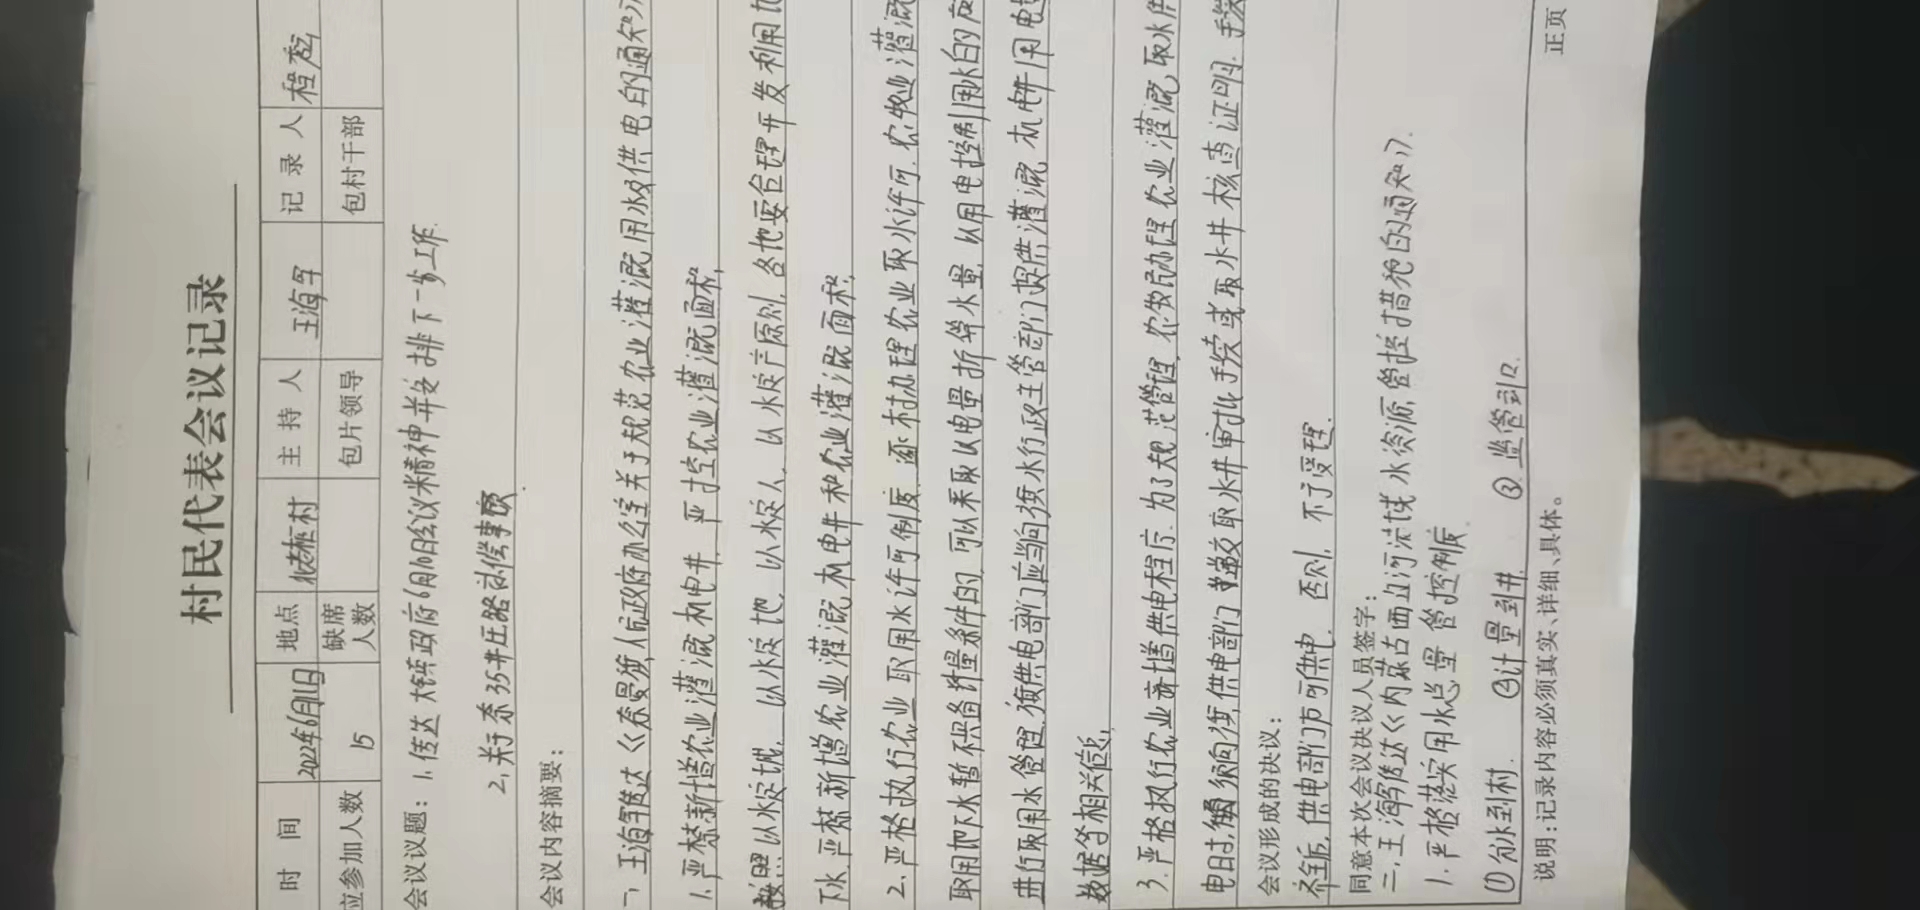 村民代表会议记录
时 间 2022年6月1日 地点 北老柜村 主 持 人 王海军 记 录 人
应参加人数 15 缺席人数 包片领导 包村干部
会议议题: 1.传达 政府6月10日会议精神并安排下一步工作.
2.关于奈35井压路补偿事项.
会议内容摘要:
一、王海军传达《奈曼旗人民政府办公室关于规范农业灌溉用水及供电的通知》
1.严禁新增农业灌溉机电井,严控农业灌溉面积,
以水定城、以水定地、以水定人、以水定产原则,各地要合理开发利用地
下水,严禁新增农业灌溉机电井和农业灌溉面积,
2.严格执行农业取用水许可制度.逐村办理农业取水许可.农牧业灌溉
取用地下水暂不具备计量条件的,可以采取以电量折算水量,以用电控制用水的应
进行取用水管理.旗供电部门应当向旗水行政主管部门提供灌溉机电井用电
数据等相关信息,
3.严格执行农业新增供电程序.为了规范管理,农牧民办理农业灌溉取水供
电时,须向旗供电部门提交取水井审批手续或取水井核查证明.手续
会议形成的决议:
齐全后,供电部门方可供电.否则,不予受理.
同意本次会议决议人员签字:
二、王海军传达《内蒙古西辽河流域水资源管控措施的通知》.
1.严格落实用水总量管控制度
①分水到村. ②计量到井. ③监管到口.
说明:记录内容必须真实、详细、具体。
正页